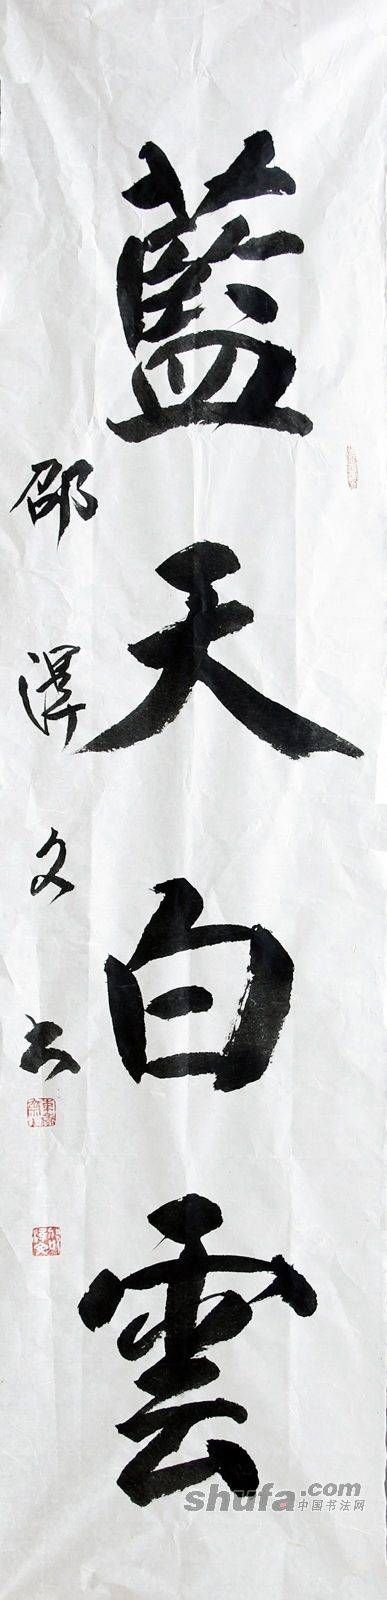 藍天白雲
邵澤文书
shufa.com
中国书法网